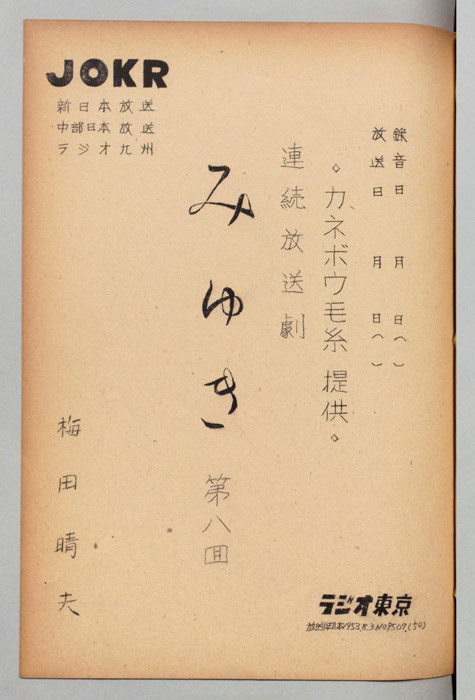 JOKR
新日本放送
中部日本放送
ラジオ九州
録音日 月 日( )
放送日 月 日( )
。カネボウ毛糸 提供。
連続放送劇
みゆき 第八回
梅田晴夫
ラジオ東京
1953.8.3 NO9507.(50)